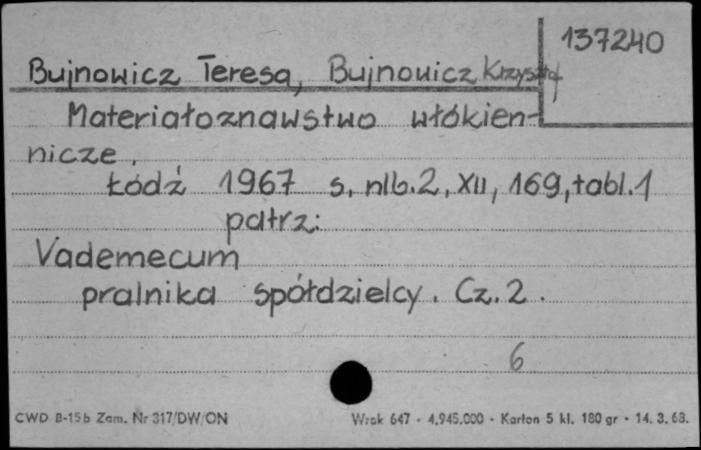 137240
Bujnowicz Teresa, Bujnowicz Krzysztof
Materiałoznawstwo włókien-
nicze.
Łódź 1967 s. nlb. 2, XII, 169, tabl. 1
patrz:
Vademecum
pralnika spółdzielcy. Cz. 2.
6
CWD B-15b Zam. Nr 317/DW/ON Wrak 647 - 4.945.000 - Karton 5 kl. 180 gr - 14. 3. 68.